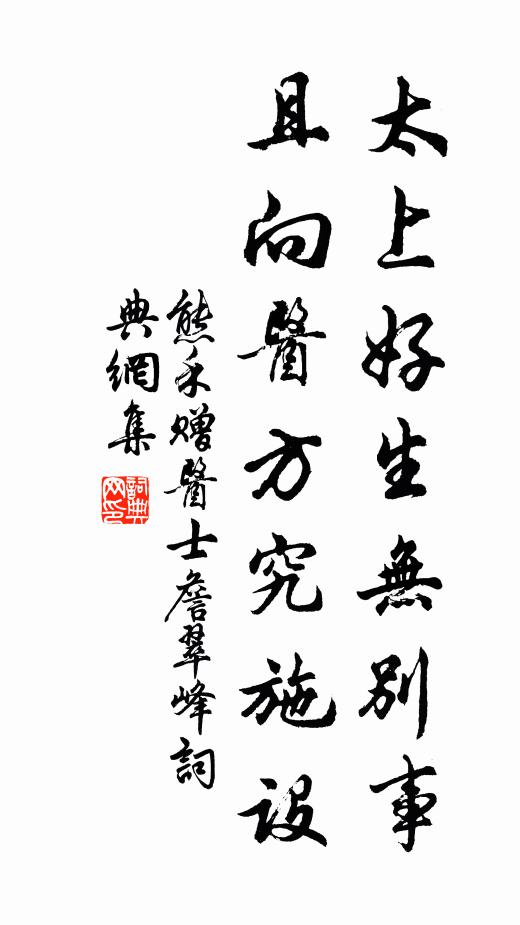 太上好生無別事
且向醫方究施設
熊禾贈醫士詹翠峰詞
典網集
詞典網印